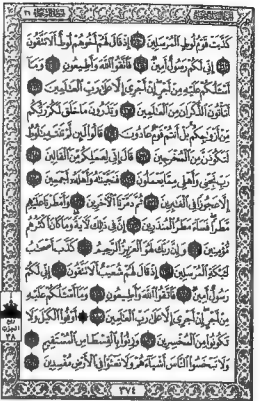 كَذَّبَتْ قَوْمُ لُوطٍ الْمُرْسَلِينَ إِذْ قَالَ لَهُمْ أَخُوهُمْ لُوطٌ أَلَا تَتَّقُونَ
إِنِّي لَكُمْ رَسُولٌ أَمِينٌ فَاتَّقُوا اللَّهَ وَأَطِيعُونِ وَمَا
أَسْـَٔلُكُمْ عَلَيْهِ مِنْ أَجْرٍ إِنْ أَجْرِيَ إِلَّا عَلَىٰ رَبِّ الْعَٰلَمِينَ
أَتَأْتُونَ الذُّكْرَانَ مِنَ الْعَٰلَمِينَ وَتَذَرُونَ مَا خَلَقَ لَكُمْ رَبُّكُمْ
مِنْ أَزْوَٰجِكُمْ بَلْ أَنْتُمْ قَوْمٌ عَادُونَ قَالُوا لَئِنْ لَمْ تَنْتَهِ يَٰلُوطُ
لَتَكُونَنَّ مِنَ الْمُخْرَجِينَ قَالَ إِنِّي لِعَمَلِكُمْ مِنَ الْقَالِينَ
رَبِّ نَجِّنِي وَأَهْلِي مِمَّا يَعْمَلُونَ فَنَجَّيْنَٰهُ وَأَهْلَهُ أَجْمَعِينَ
إِلَّا عَجُوزًا فِي الْغَٰبِرِينَ ثُمَّ دَمَّرْنَا الْآخَرِينَ وَأَمْطَرْنَا عَلَيْهِمْ
مَطَرًا فَسَاءَ مَطَرُ الْمُنْذَرِينَ إِنَّ فِي ذَٰلِكَ لَآيَةً وَمَا كَانَ أَكْثَرُهُمْ
مُؤْمِنِينَ وَإِنَّ رَبَّكَ لَهُوَ الْعَزِيزُ الرَّحِيمُ كَذَّبَ أَصْحَٰبُ
لْـَٔيْكَةِ الْمُرْسَلِينَ إِذْ قَالَ لَهُمْ شُعَيْبٌ أَلَا تَتَّقُونَ إِنِّي لَكُمْ
رَسُولٌ أَمِينٌ فَاتَّقُوا اللَّهَ وَأَطِيعُونِ وَمَا أَسْـَٔلُكُمْ عَلَيْهِ
مِنْ أَجْرٍ إِنْ أَجْرِيَ إِلَّا عَلَىٰ رَبِّ الْعَٰلَمِينَ أَوْفُوا الْكَيْلَ وَلَا
تَكُونُوا مِنَ الْمُخْسِرِينَ وَزِنُوا بِالْقِسْطَاسِ الْمُسْتَقِيمِ
وَلَا تَبْخَسُوا النَّاسَ أَشْيَاءَهُمْ وَلَا تَعْثَوْا فِي الْأَرْضِ مُفْسِدِينَ
ربع
الحزب
٣٨
٣٧٤